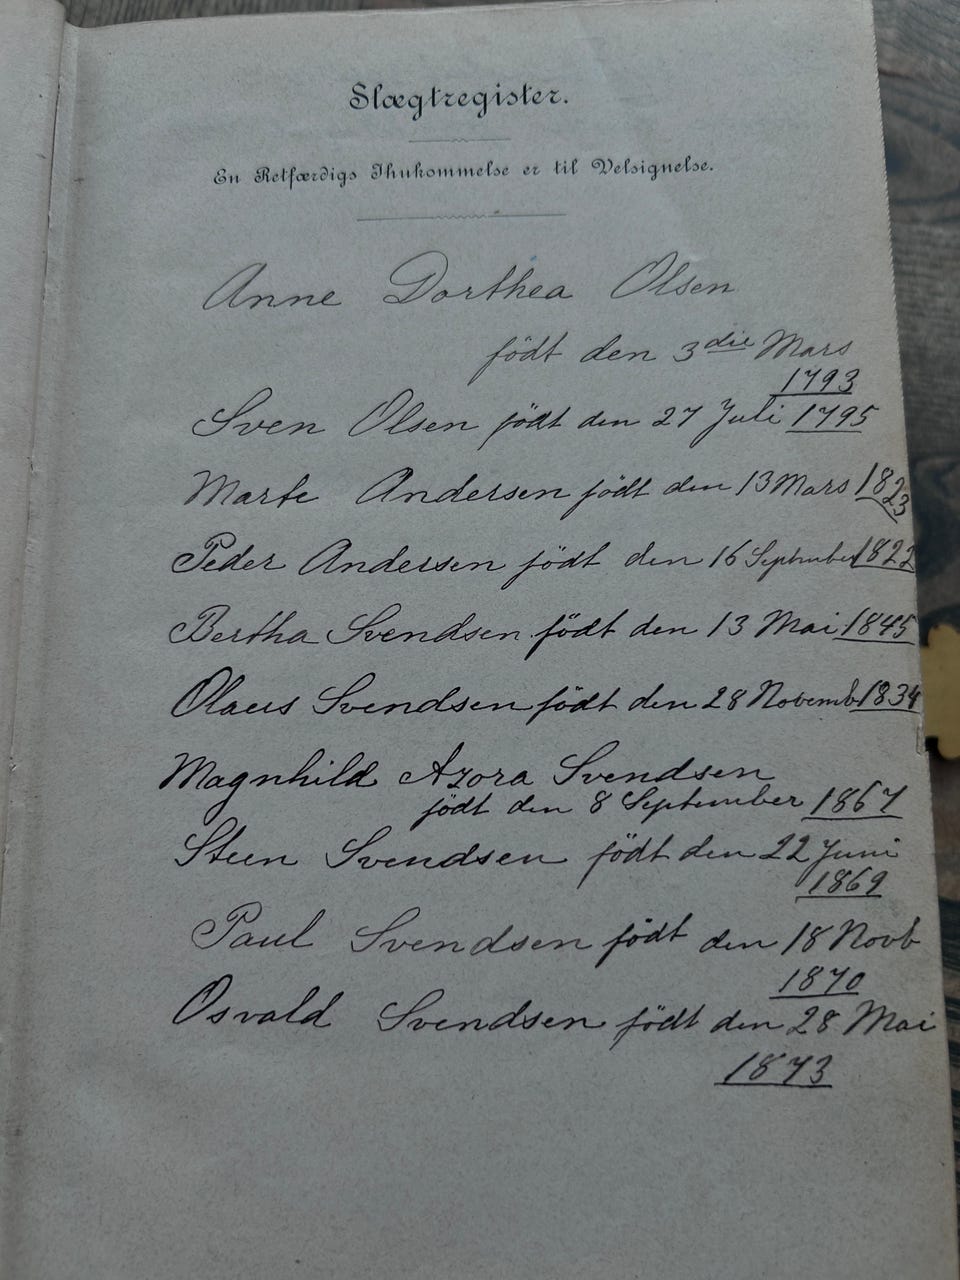 Slægtregister.
En Retfærdigs Ihukommelse er til Velsignelse.
Anne Dorthea Olsen
födt den 3die Mars
1793
Sven Olsen födt den 27 Juli 1795
Marte Andersen födt den 13 Mars 1823
Peder Andersen födt den 16 September 1822
Bertha Svendsen födt den 13 Mai 1845
Olaus Svendsen födt den 28 Novemb 1834
Magnhild Azora Svendsen
födt den 8 September 1867
Steen Svendsen födt den 22 Juni
1869
Paul Svendsen födt den 18 Novb
1870
Osvald Svendsen födt den 28 Mai
1873